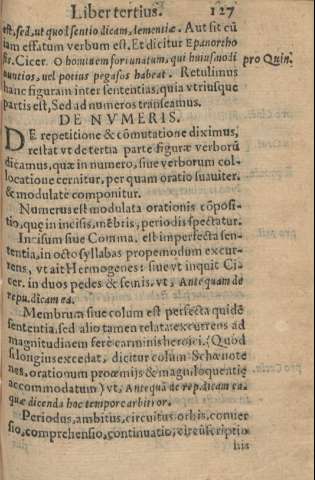 Liber tertius. 127
est, sed, ut quod sentio dicam, dementiæ. Aut sit cũ
iam effatum verbum est. Et dicitur Epanortho
sis. Cicer. O hominem fortunatum, qui huiusmodi
nuntios, uel potius pegasos habeat. Retulimus
hanc figuram inter sententias, quia vtriusque
partis est, Sed ad numeros transeamus.
pro Quin
DE NVMERIS.
DE repetitione & cõmutatione diximus,
restat vt de tertia parte figuræ verborũ
dicamus, quæ in numero, siue verborum col-
locatione cernitur, per quam oratio suauiter
& modulate componitur.
Numerus est modulata orationis cõposi-
tio, quę in incisis, mẽbris, periodis spectatur.
Incisum siue Comma, est imperfecta sen-
tentia, in octo syllabas propemodum excur-
rens, vt ait Hermogenes: siue vt inquit Ci-
cer. in duos pedes & semis. vt, Antequam de
repu. dicam ea.
Membrum siue colum est perfecta quidẽ
sententia, sed alio tamen relata excurrens ad
magnitudinem ferè carminis heroici. (Quod
si longius excedat, dicitur colum Schœnote
nes, orationum proœmijs & magniloquentię
accommodatum) vt, Antequã de rep. dicam ea,
quæ dicenda hoc tempore arbitror.
Periodus, ambitus, circuitus orbis, conuer
sio, comprehensio, continuatio, circũscriptio
his